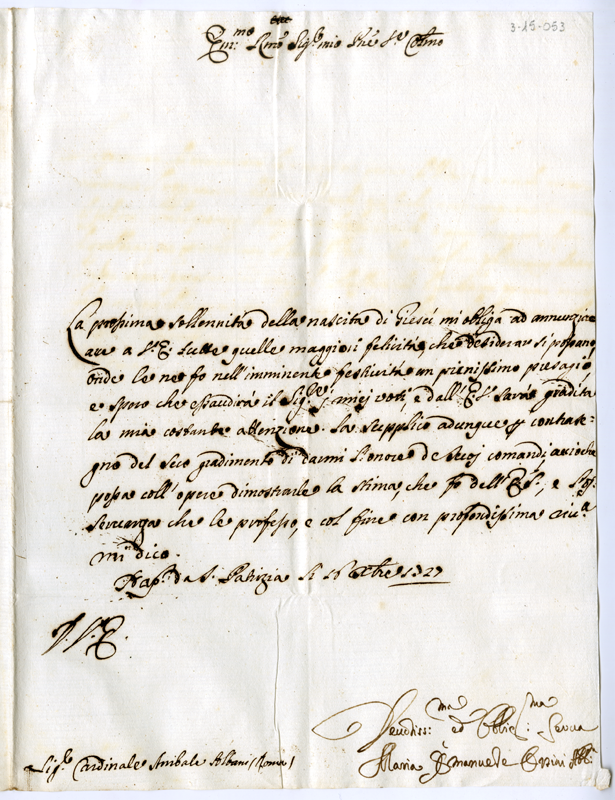 3-15-053
Em:mo Rmo Sig.re mio Pne Sr. Colmo
La prossima sollennità della nascita di Giesù mi obliga ad annunziare
a V. E. tutte quelle maggiori felicità che desiderar si possano,
onde le ne fo nell'imminente festività un pienissimo presagio
e spero che esaudirà il Sig.re i miei voti, e dall'E. V. sarà gradita
la mia costante attenzione. La supplico adunque p contrase-
gno del suo gradimento di darmi l'onore de suoi comandi, acioche
possa coll'opere dimostrarle la stima, che fo dell'E. V., e
servenza che le professo, e col fine con profondissima
mi dico.
Nap. da S. Patrizia li 16 Xbre 1727
D. V. E.
Devotiss:ma ed Oblig:ma Serva
Maria Emanuele Orsini Abb.a
Sig.r Cardinale Anibale Albani (Roma)